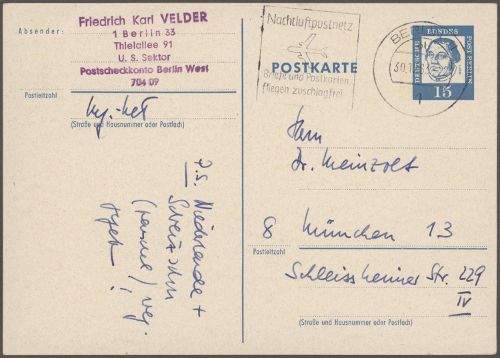 Friedrich Karl VELDER
1 Berlin 33
Thielallee 91
U. S. Sektor
Postscheckkonto Berlin West
704 09
Absender:
Postleitzahl
(Straße und Hausnummer oder Postfach)
P.S. Niederlande +
Nachtluftpostnetz
Briefe und Postkarten
fliegen zuschlagfrei
POSTKARTE
BER
30.1
DEUTSCHE BUNDESPOST BERLIN
15
Herrn
Dr. Meinzolt
8 München 13
Postleitzahl
Schleissheimer Str. 229
IV
(Straße und Hausnummer oder Postfach)